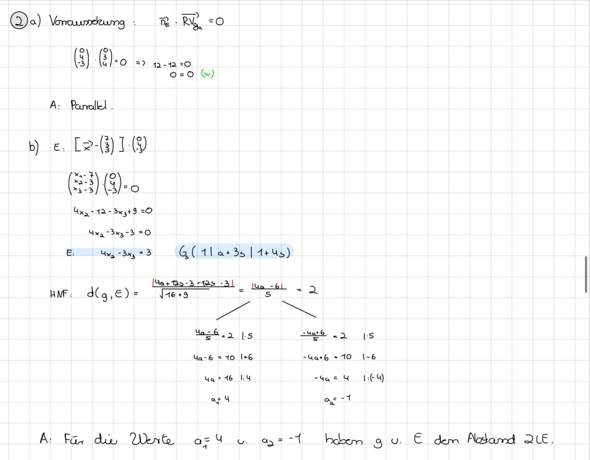 ② a) Voraussetzung: n⃗_E · RV⃗_ga = 0
(0 4 -3) · (0 3 4) = 0 => 12-12=0
0=0 (w)
A: Parallel.
b) E: [x⃗ - (7 3 3)] · (0 4 -3)
(x₁-7 x₂-3 x₃-3) · (0 4 -3) = 0
4x₂-12-3x₃+9=0
4x₂-3x₃-3=0
E: 4x₂-3x₃=3 G₃(1|a+3s|1+4s)
HNF: d(g,E) = |4a+12s-3-12s-3| / √(16+9) = |4a-6| / 5 = 2
(4a-6)/5 = 2 |·5 (-4a+6)/5 = 2 |·5
4a-6=10 |+6 -4a+6=10 |-6
4a=16 |:4 -4a=4 |:(-4)
a₁=4 a₂=-1
A: Für die Werte a₁=4 u. a₂=-1 haben g u. E den Abstand 2LE.